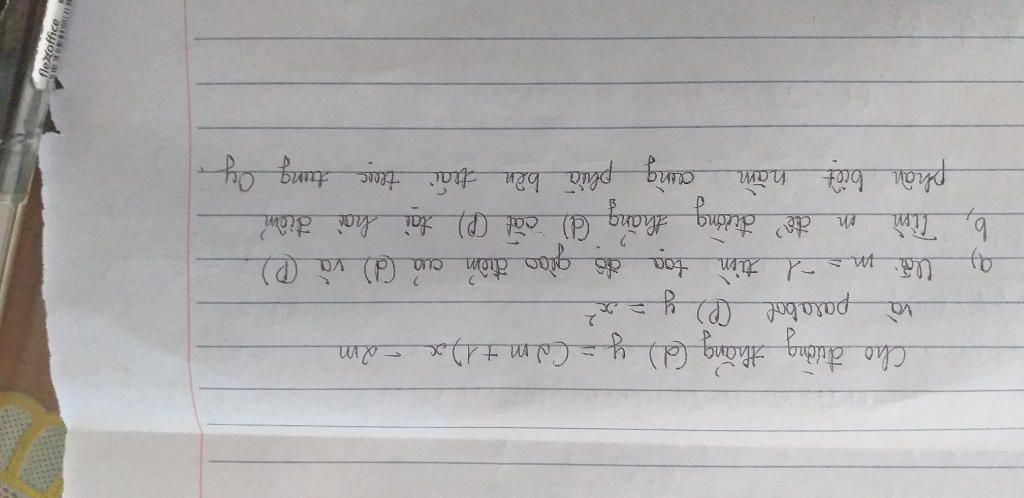 Cho đường thẳng (d) y = (2m + 1)x - 2m
và parabol (P) y = x²
a) Với m = -1 tìm tọa độ giao điểm của (d) và (P).
b, Tìm m để đường thẳng (d) cắt (P) tại hai điểm
phân biệt nằm cùng phía bên trái trục tung Oy.
flexoffice